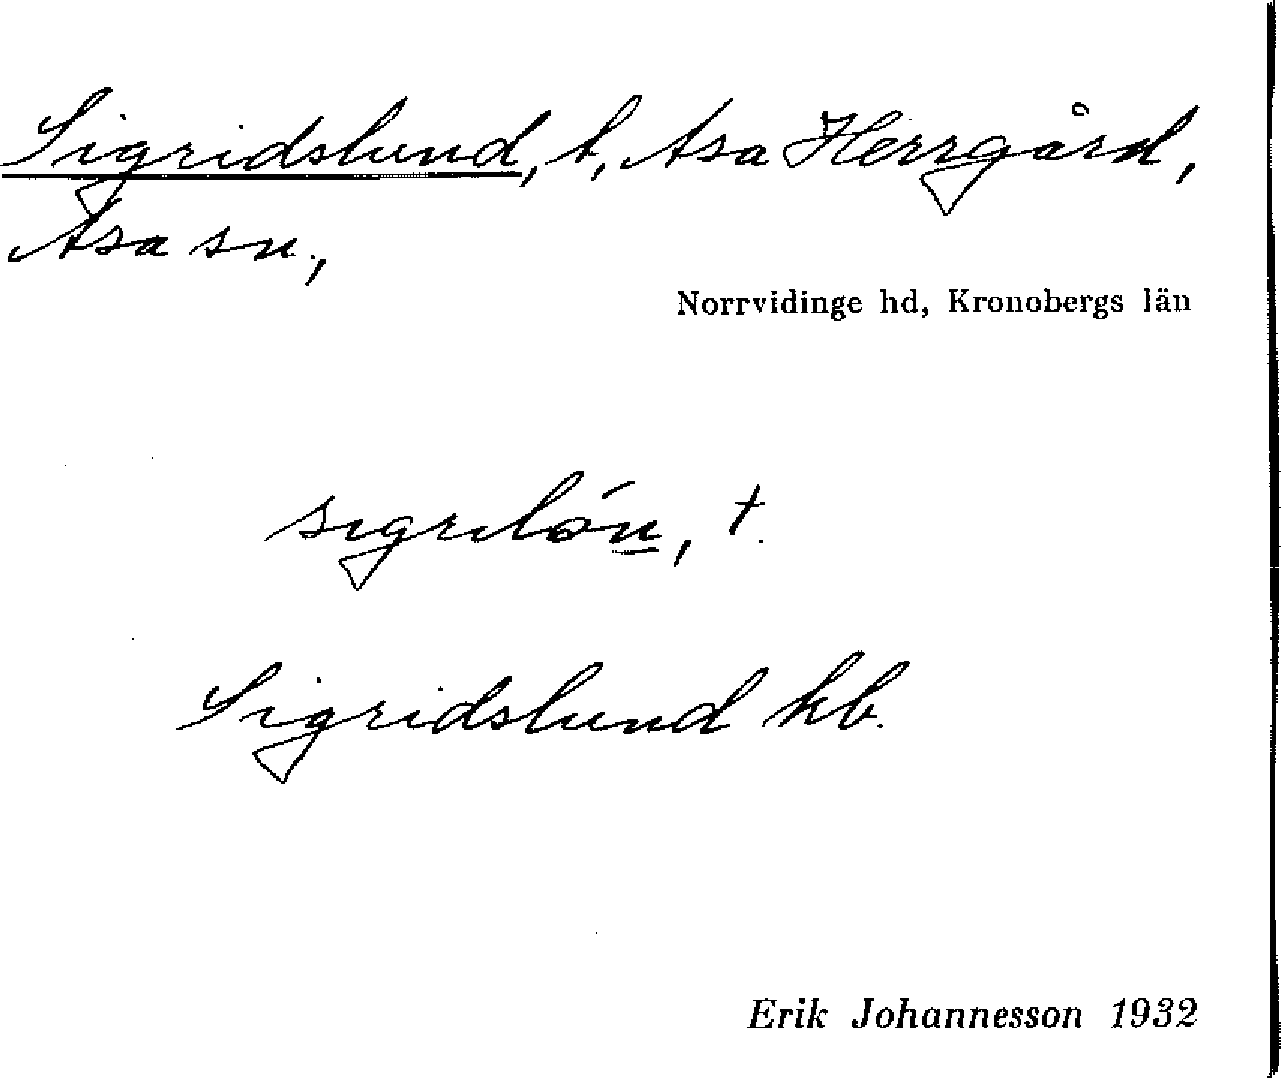 Sigridslund, t, Asa Herrgård,
Asa sn.,
Norrvidinge hd, Kronobergs län
sıgrılón, t.
Sigridslund kb.
Erik Johannesson 1932